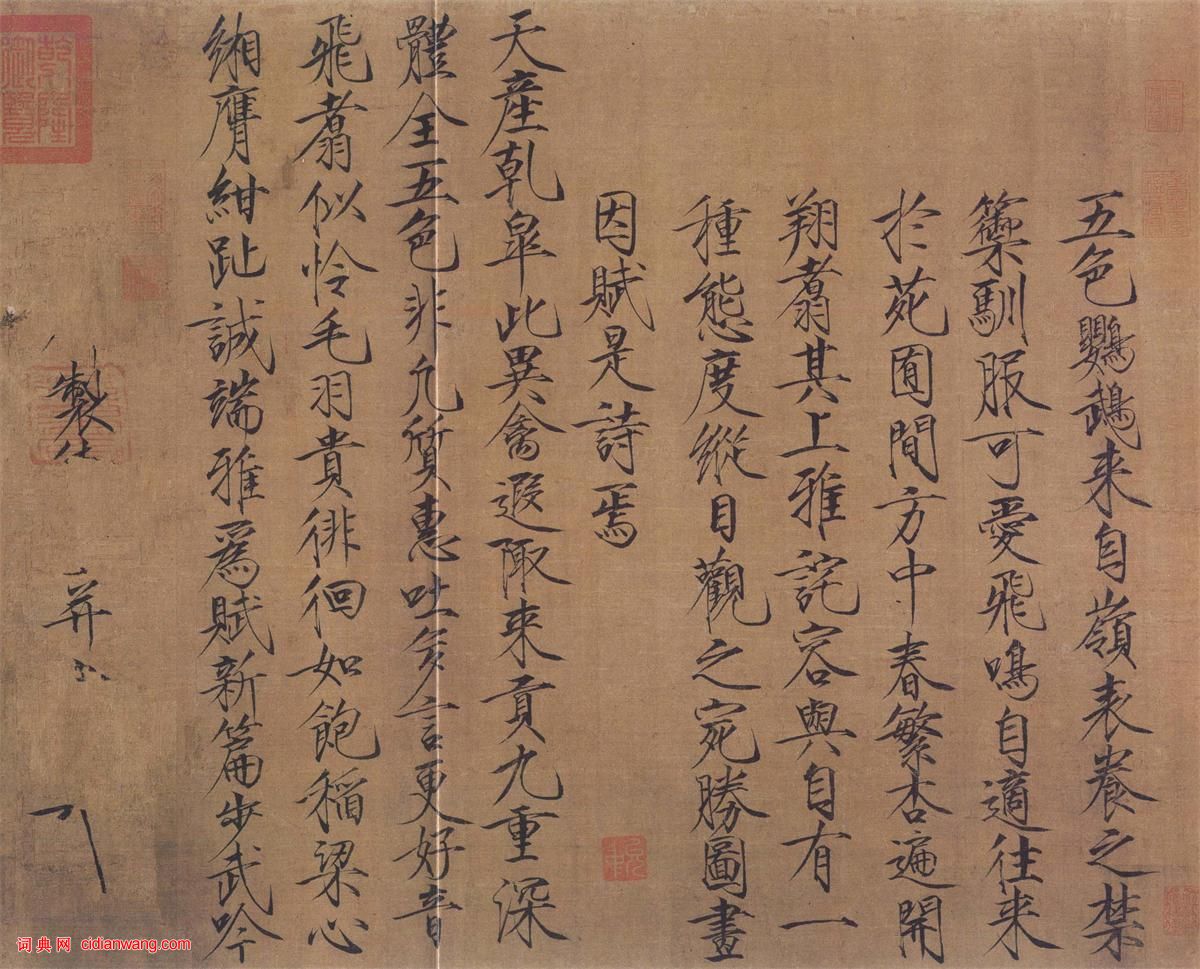 五色鸚鵡来自嶺表養之禁
籞馴服可愛飛鳴自適往来
於苑囿間方中春繁杏遍開
翔翥其上雅詫容與自有一
種態度縱目觀之宛勝圖畫
因賦是詩焉
天產乾皐此異禽遐陬来貢九重深
體全五色非凡質惠吐多言更好音
飛翥似憐毛羽貴徘徊如飽稻粱心
緗膺紺趾誠端雅為賦新篇步武吟
製
詞典網 cidianwang.com